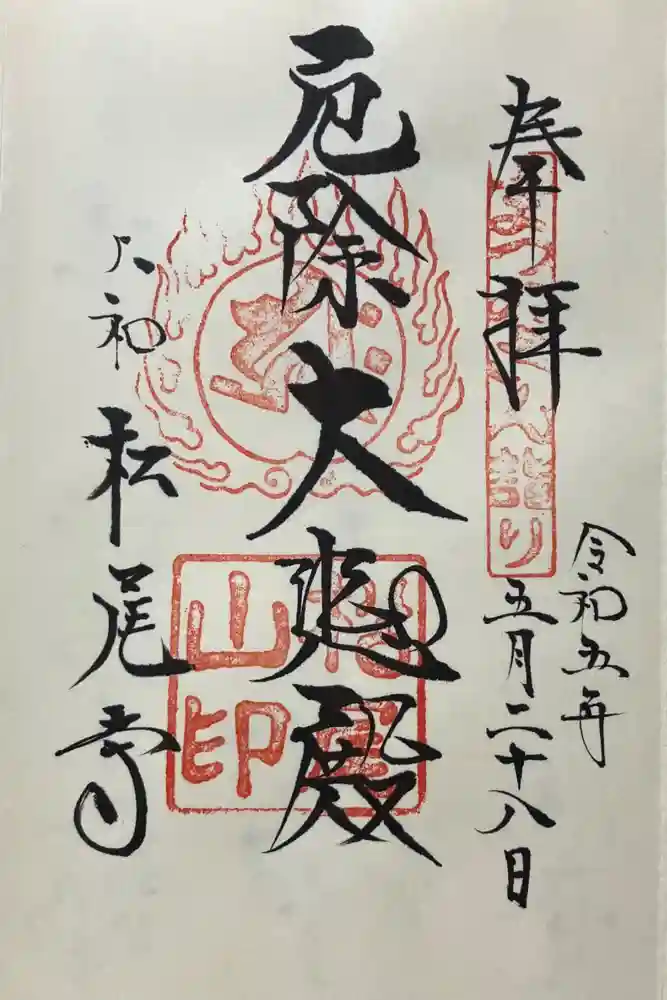 奉拝
詣り
令和五年
五月二十八日
厄除大悲殿
松尾
山印
大和
松尾寺